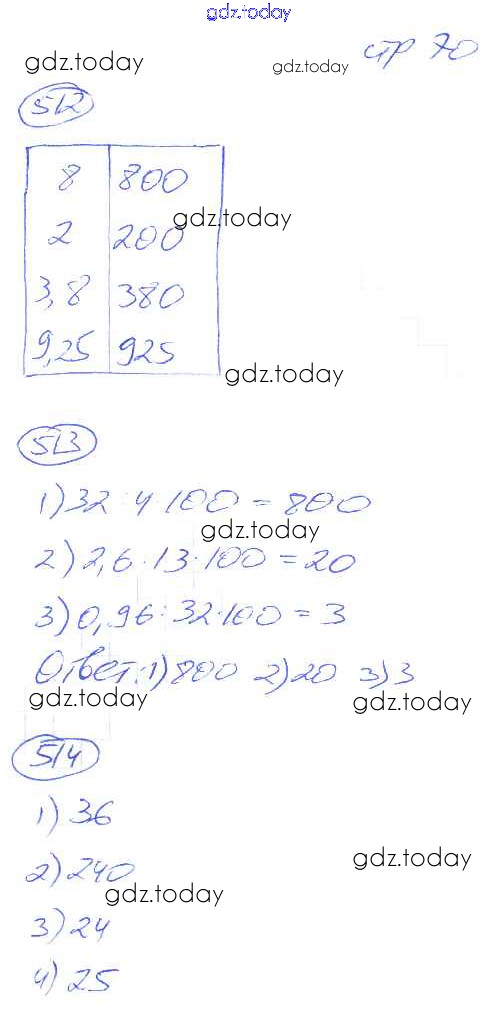 gdz.today
gdz.today
gdz.today
стр 70
512
8 800
gdz.today
2 200
3,8 380
9,25 925
gdz.today
513
1) 32 : 4 · 100 = 800
gdz.today
2) 2,6 · 13 · 100 = 20
3) 0,96 : 32 · 100 = 3
Ответ: 1) 800 2) 20 3) 3
gdz.today
gdz.today
514
1) 36
gdz.today
2) 240
gdz.today
3) 24
4) 25